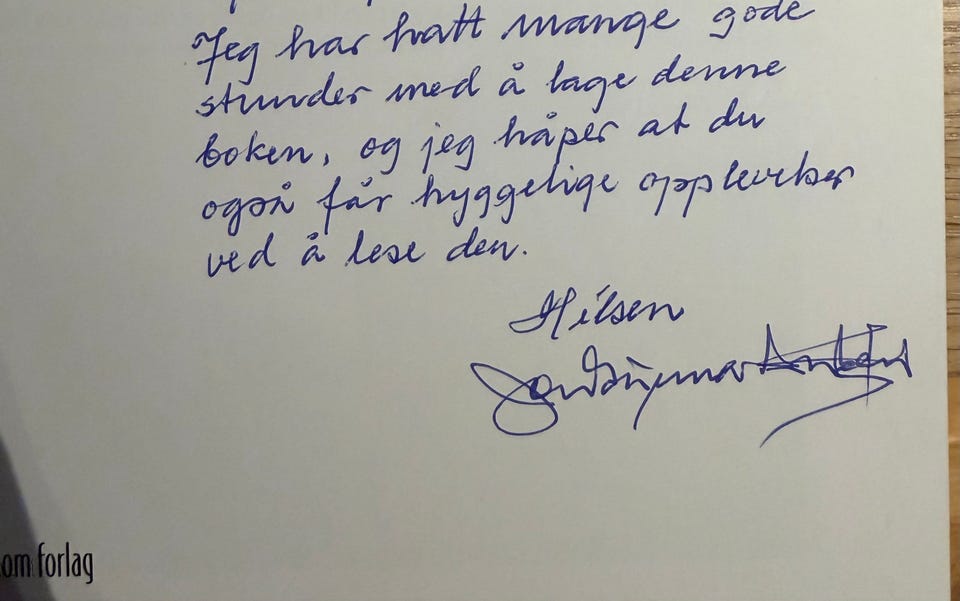 Jeg har hatt mange gode
stunder med å lage denne
boken, og jeg håper at du
også får hyggelige opplevelser
ved å lese den.
Hilsen
om forlag